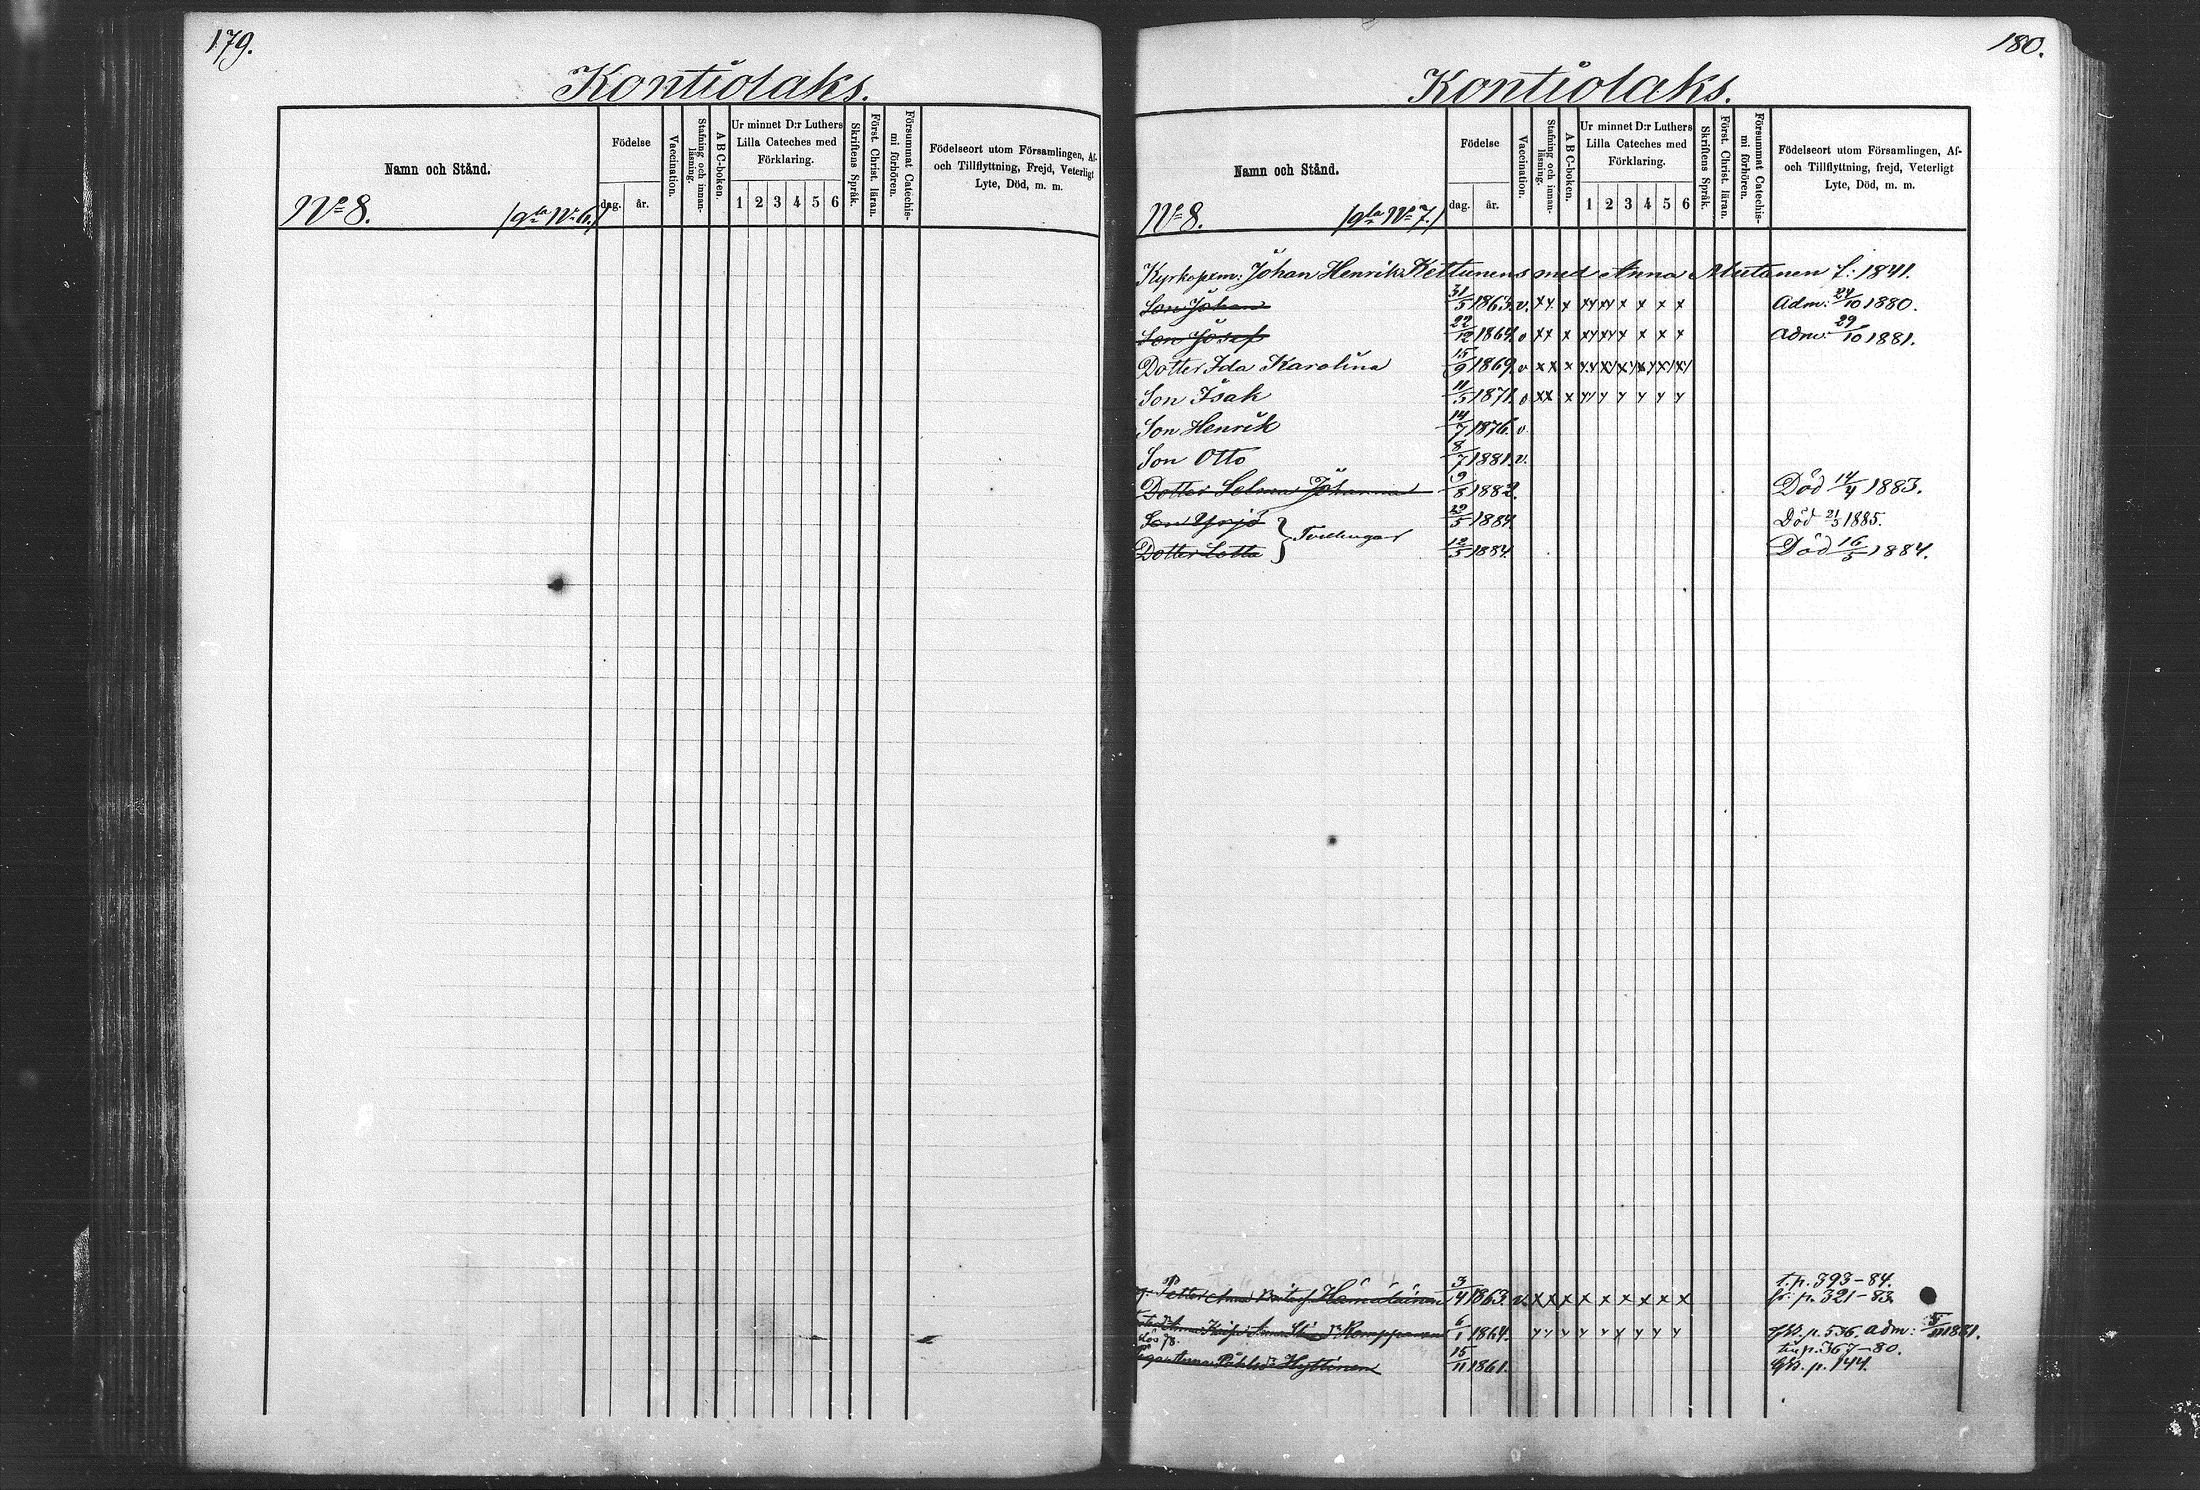 179.
Kontiolaks.
Namn och Stånd.
Födelse
dag. år.
Vaccination.
Stafning och innan-läsning.
A B C-boken.
Ur minnet D:r Luthers
Lilla Cateches med
Förklaring.
1 2 3 4 5 6
Skriftens Språk.
Först. Christ. läran.
Försummat Catechis-mi förhören.
Födelseort utom Församlingen, Af-
och Tillflyttning, Frejd, Veterligt
Lyte, Död, m. m.
No 8. /gla No 6./
180.
Kontiolaks.
Namn och Stånd.
Födelse
dag. år.
Vaccination.
Stafning och innan-läsning.
A B C-boken.
Ur minnet D:r Luthers
Lilla Cateches med
Förklaring.
1 2 3 4 5 6
Skriftens Språk.
Först. Christ. läran.
Försummat Catechis-mi förhören.
Födelseort utom Församlingen, Af-
och Tillflyttning, frejd, Veterligt
Lyte, Död, m. m.
No 8. /gla No 7./
Johan Henrik Kettunens med Anna Mutanen f: 1841.
Son Johan 31/5 1863. v. xy x xy xy x x x x Adm: 24/10 1880.
Son Josef 22/12 1864. v xx x xy xy x x x x Adm: 29/10 1881.
Dotter Ida Karolina 15/9 1869. v x x x
Son Isak 11/5 1871. v xx x y y y y y y
Son Henrik 14/7 1876. v.
Son Otto 8/7 1881. v.
Dotter Selma Johanna 9/8 1882. Död 14/4 1883.
Son Yrjö } Tvillingar 12/5 1884 Död 21/5 1885.
Dotter Lotta 12/5 1884. Död 16/5 1884.
t. p. 393-84.
Petter Hämäläinen 3/4 1863. v. x x x x x x x x x fr. p. 321-83
Romppanen 6/1 1864. y y y y y y y y y p. 536. Adm: 1881.
p. 367-80.
Anna Hyttinen 15/11 1861. p. 144.